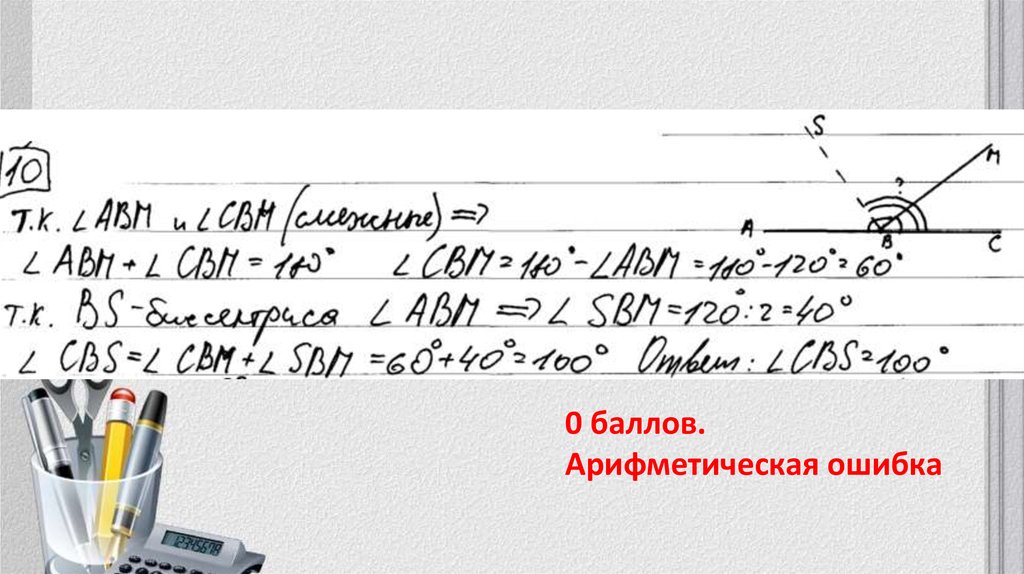 10
S
M
?
A
B
C
Т.К. ∠ABM и ∠CBM (смежные) =>
∠ABM + ∠CBM = 180° ∠CBM = 180° - ∠ABM = 180° - 120° = 60°
т.к. BS - биссектриса ∠ABM => ∠SBM = 120° : 2 = 40°
∠CBS = ∠CBM + ∠SBM = 60° + 40° = 100° Ответ: ∠CBS = 100°
0 баллов.
Арифметическая ошибка
12345678